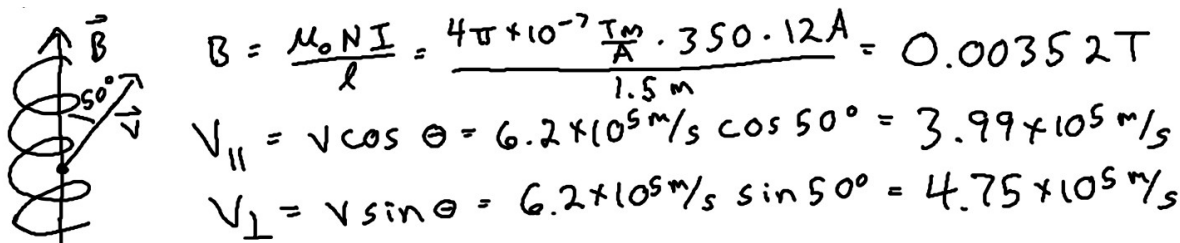 B⃗
50°
V⃗
B = μ₀NI/l = (4π×10⁻⁷ Tm/A · 350 · 12A)/1.5 m = 0.00352T
V∥ = v cos θ = 6.2×10⁵ m/s cos 50° = 3.99×10⁵ m/s
V⊥ = v sin θ = 6.2×10⁵ m/s sin 50° = 4.75×10⁵ m/s